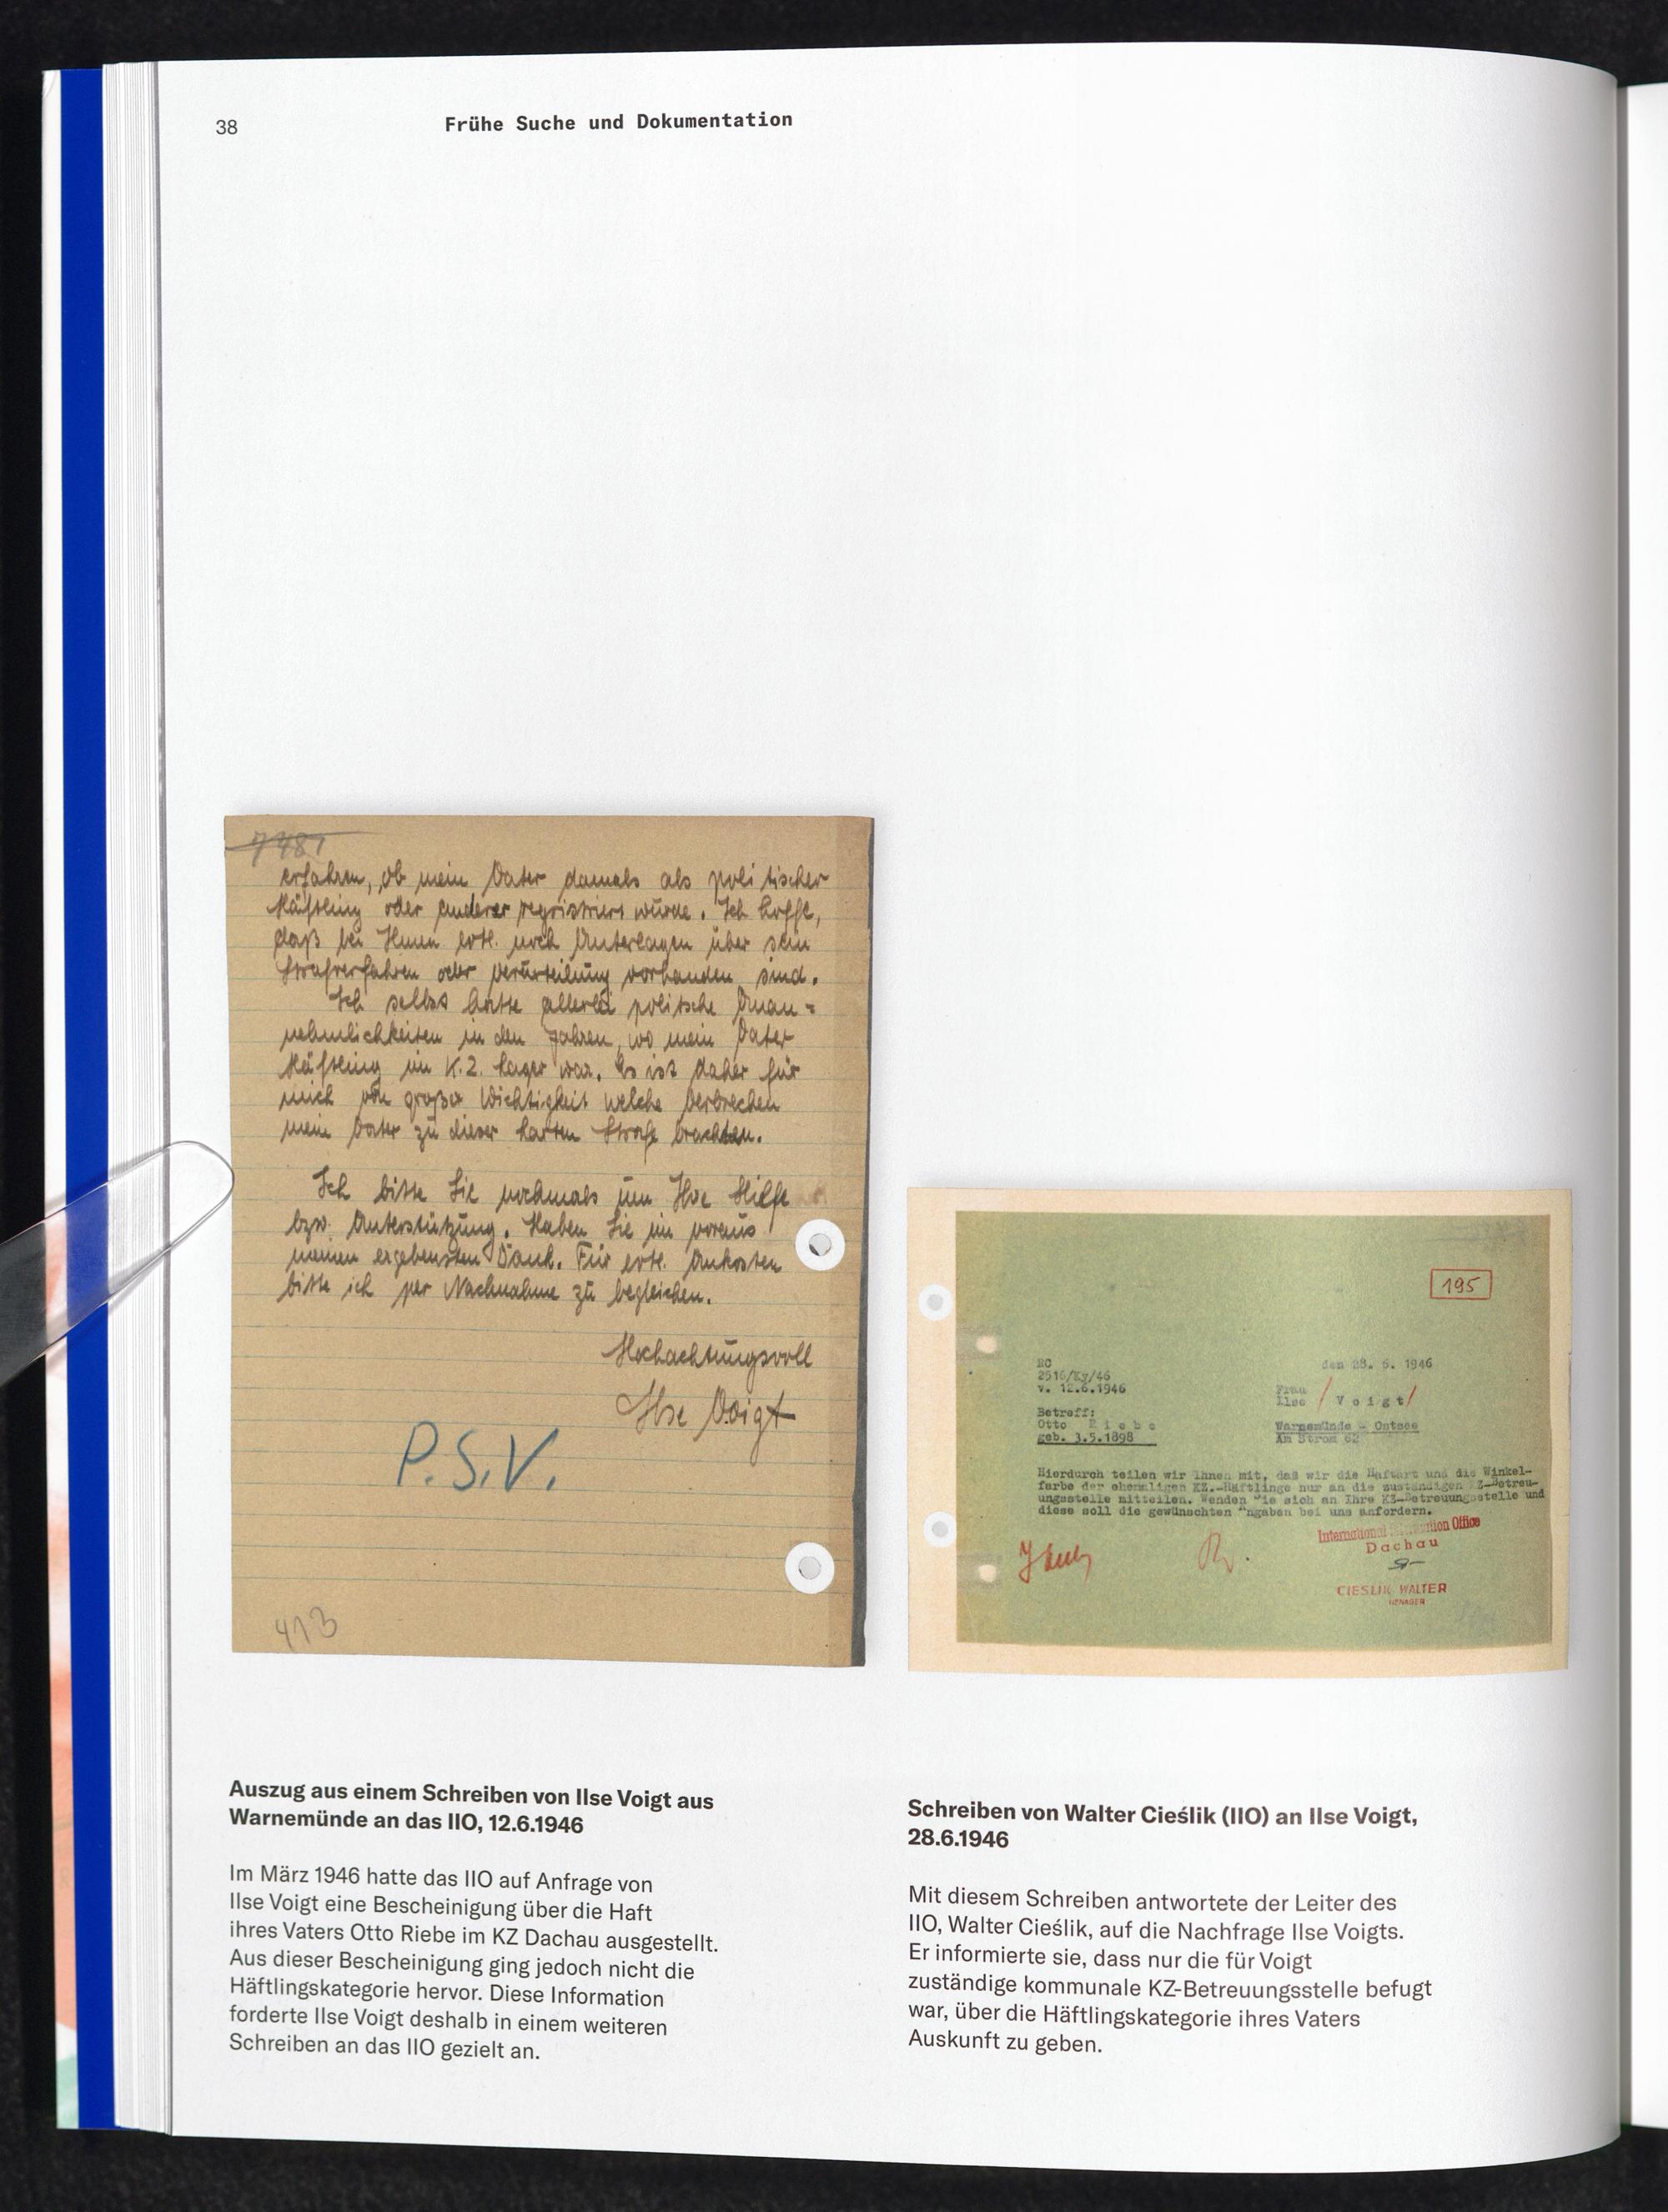 38
Frühe Suche und Dokumentation
7481
erfahren, ob mein Vater damals als politischer
Häftling oder anderer regristriert wurde. Ich hoffe,
daß bei Ihnen evtl. noch Unterlagen über sein
Strafverfahren oder Verurteilung vorhanden sind.
Ich selbst hatte allerlei politsche Unan=
nehmlichkeiten in den Jahren, wo mein Vater
Häftling im K.Z. Lager war. Es ist daher für
mich von großer Wichtigkeit welche Verbrechen
mein Vater zu dieser harten Strafe brachten.
Ich bitte Sie nochmals um Ihre Hilfe
bzw. Unterstützung. Haben Sie im voraus
meinen ergebensten Dank. Für evtl. Unkosten
bitte ich per Nachnahme zu begleichen.
Hochachtungsvoll
Ilse Voigt
P.S.V.
413
195
RC
2516/Ky/46
v. 12.6.1946
den 28. 6. 1946
Frau
Ilse / Voigt/
Betreff:
Otto Riebe
geb. 3.5.1898
Warnemünde - Ostsee
Am Strom 62
Hierdurch teilen wir Ihnen mit, daß wir die Haftart und die Winkel-
farbe der ehemaligen KZ.-Häftlinge nur an die zuständigen KZ-Betreu-
ungsstelle mitteilen. Wenden Sie sich an Ihre KZ-Betreuungsstelle und
diese soll die gewünschten Angaben bei uns anfordern.
International Office
Dachau
CIESLIK WALTER
MENAGER
Auszug aus einem Schreiben von Ilse Voigt aus
Warnemünde an das IIO, 12.6.1946
Im März 1946 hatte das IIO auf Anfrage von
Ilse Voigt eine Bescheinigung über die Haft
ihres Vaters Otto Riebe im KZ Dachau ausgestellt.
Aus dieser Bescheinigung ging jedoch nicht die
Häftlingskategorie hervor. Diese Information
forderte Ilse Voigt deshalb in einem weiteren
Schreiben an das IIO gezielt an.
Schreiben von Walter Cieślik (IIO) an Ilse Voigt,
28.6.1946
Mit diesem Schreiben antwortete der Leiter des
IIO, Walter Cieślik, auf die Nachfrage Ilse Voigts.
Er informierte sie, dass nur die für Voigt
zuständige kommunale KZ-Betreuungsstelle befugt
war, über die Häftlingskategorie ihres Vaters
Auskunft zu geben.